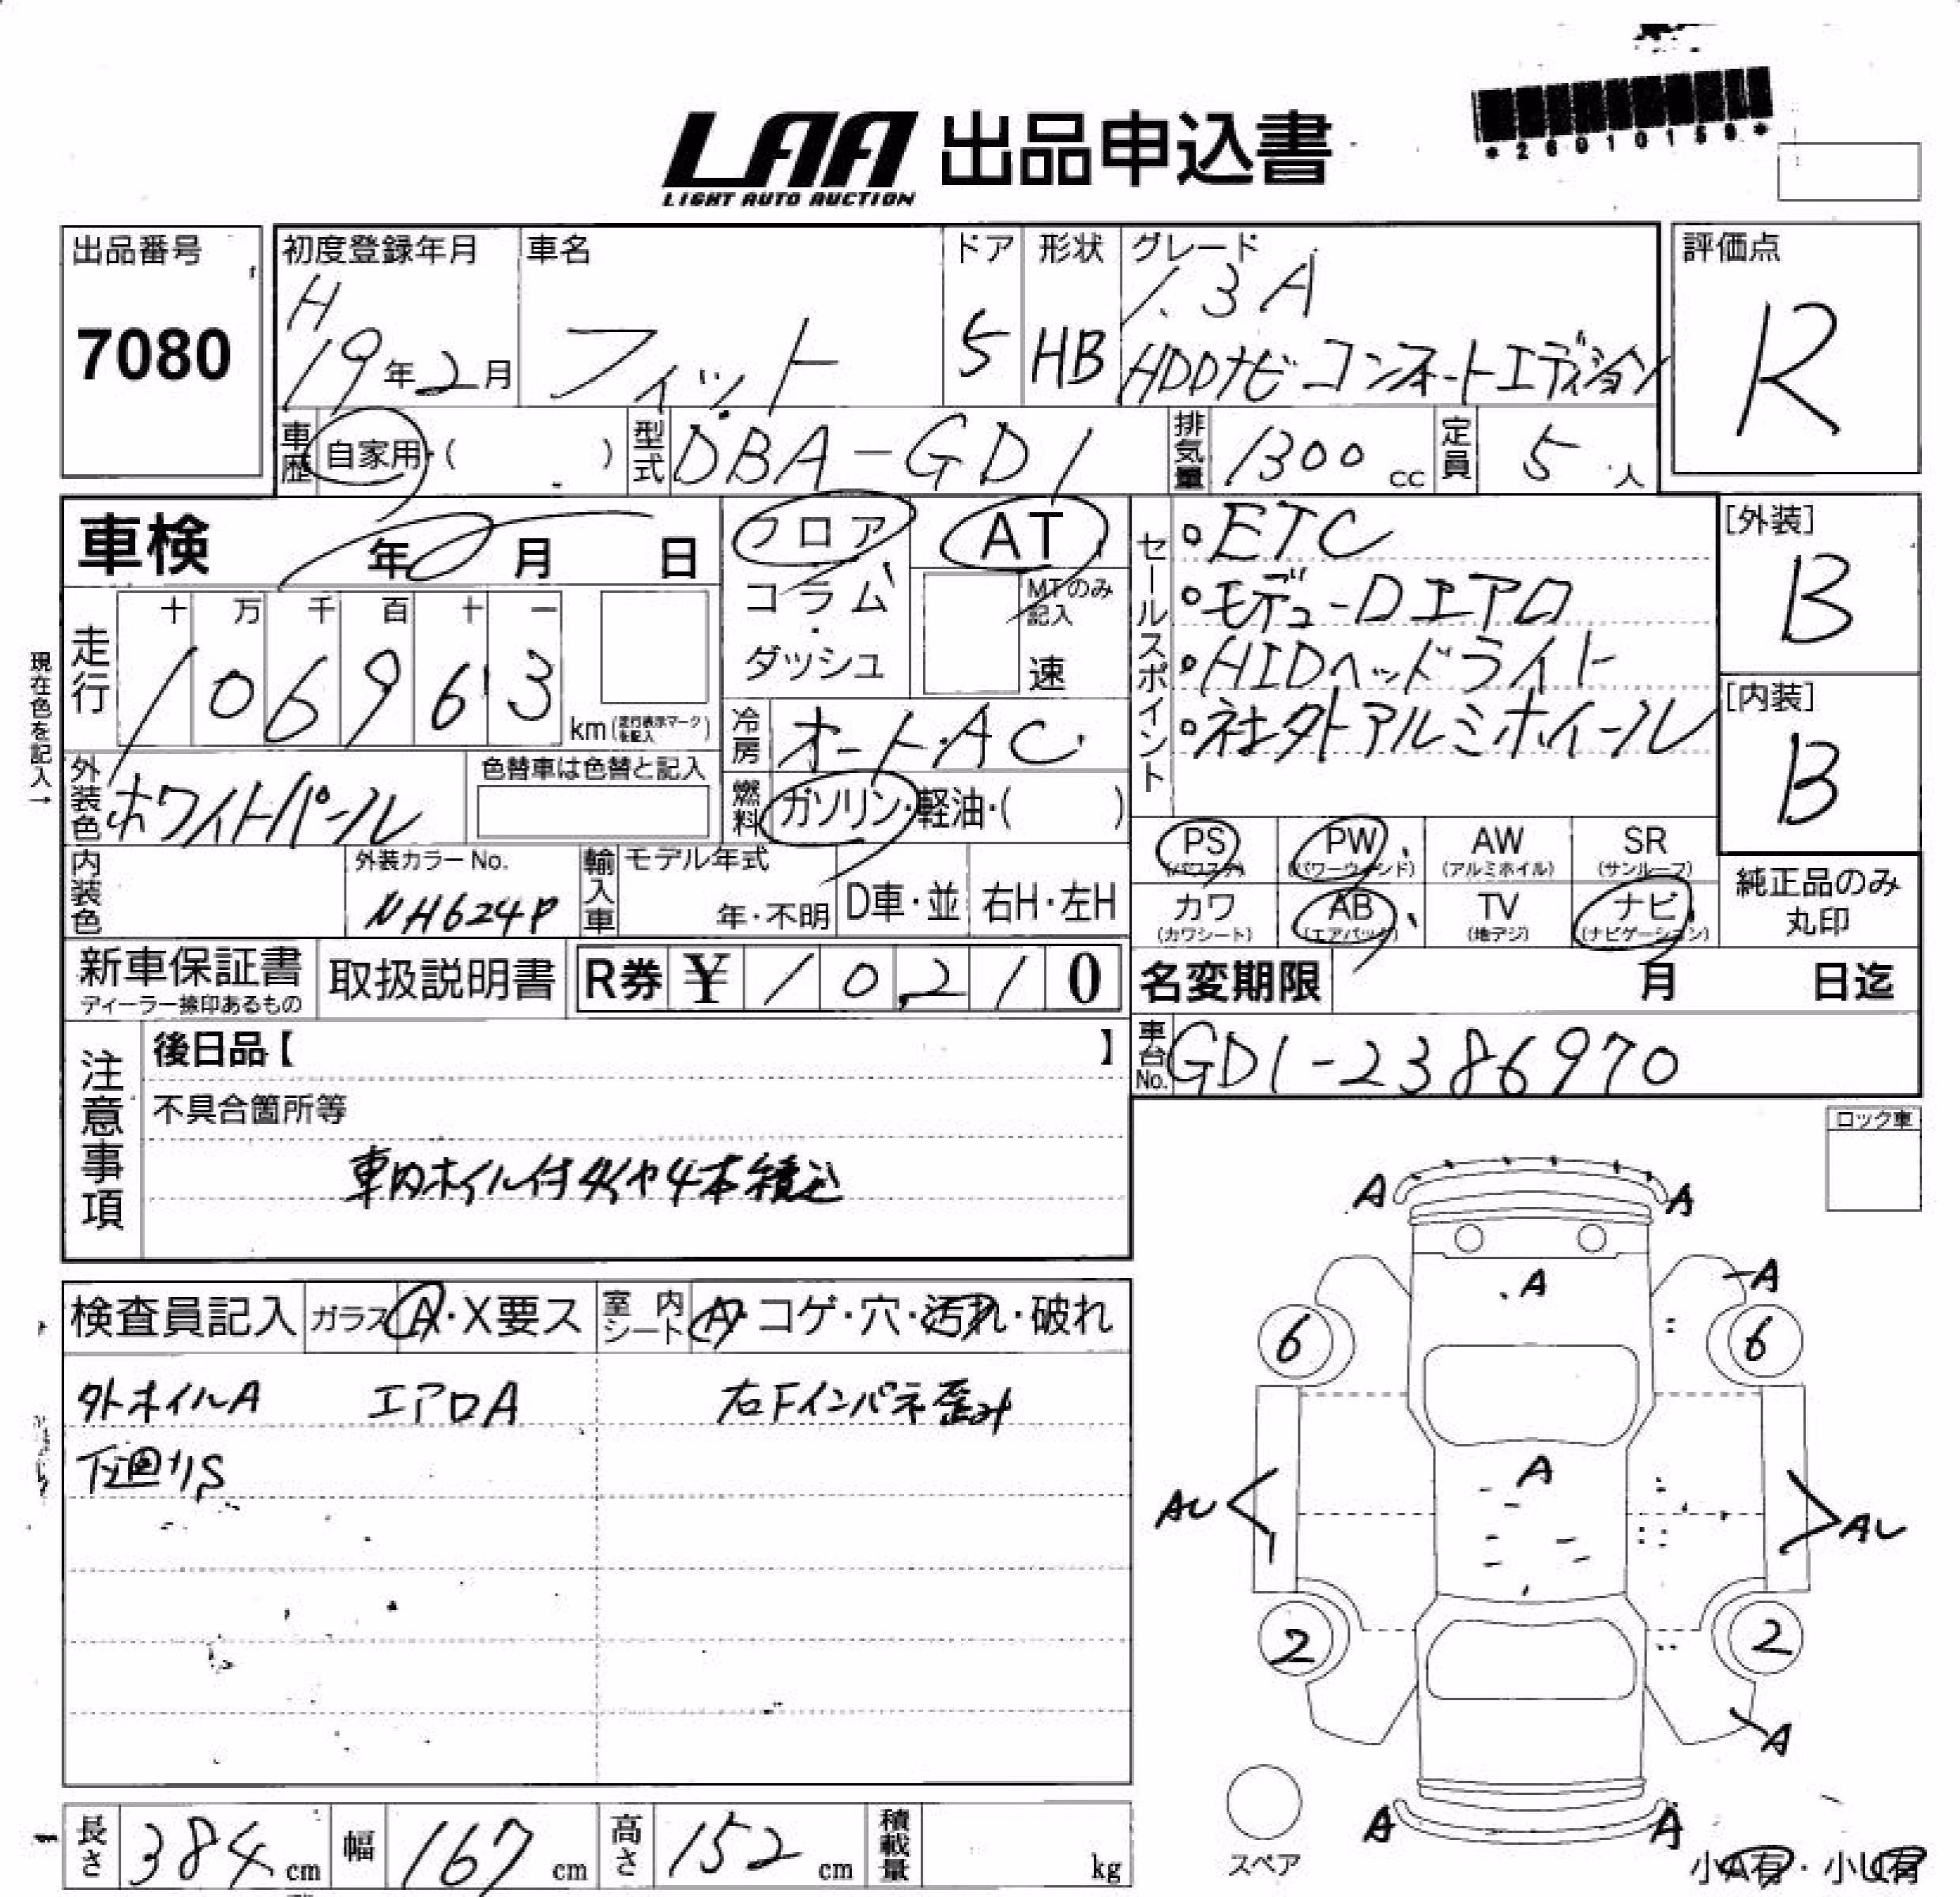 LAA 出品申込書
LIGHT AUTO AUCTION
*26010150*
出品番号
7080
初度登録年月
H
19年2月
車名
フィット
ドア
5
形状
HB
グレード
1.3A
HDDナビ コンネートエディション
評価点
R
車歴
自家用・( )
型式
DBA-GD1
排気量
1300 cc
定員
5 人
車検 年 月 日
フロア
コラム
ダッシュ
AT
MTのみ記入
速
セールスポイント
ETC
モデューロエアロ
HIDヘッドライト
社外アルミホイール
[外装]
B
[内装]
B
現在色を記入→
走行
十 万 千 百 十 一
1 0 6 9 6 3
km(走行表示マークを記入)
冷房
オートAC
外装色
ホワイトパール
色替車は色替と記入
燃料
ガソリン・軽油・( )
内装色
外装カラーNo.
NH624P
輸入車
モデル年式
年・不明
D車・並
右H・左H
PS
(パワステ)
PW
(パワーウィンド)
AW
(アルミホイル)
SR
(サンルーフ)
カワ
(カワシート)
AB
(エアバック)
TV
(地デジ)
ナビ
(ナビゲーション)
純正品のみ
丸印
新車保証書
ディーラー捺印あるもの
取扱説明書
R券 ¥ 1 0,2 1 0
名変期限 月 日迄
車台No.
GD1-2386970
注意事項
後日品【 】
不具合箇所等
車内ホイル付タイヤ4本積込
ロック車
検査員記入
ガラス A・X要ス
室内シート A・コゲ・穴・汚れ・破れ
外ホイルA エアロA 右Fインパネ歪み
下廻りS
A A
A A
6 6
A
AU AU
2 2
A
A A
スペア
小A有・小U有
長さ 384 cm
幅 167 cm
高さ 152 cm
積載量 kg